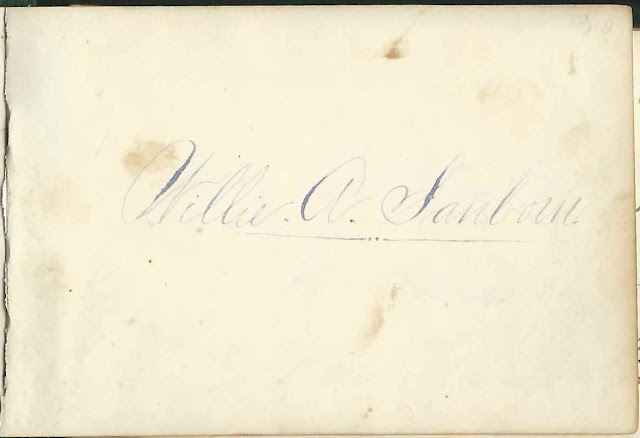 30
Willie. A. Sanborn.